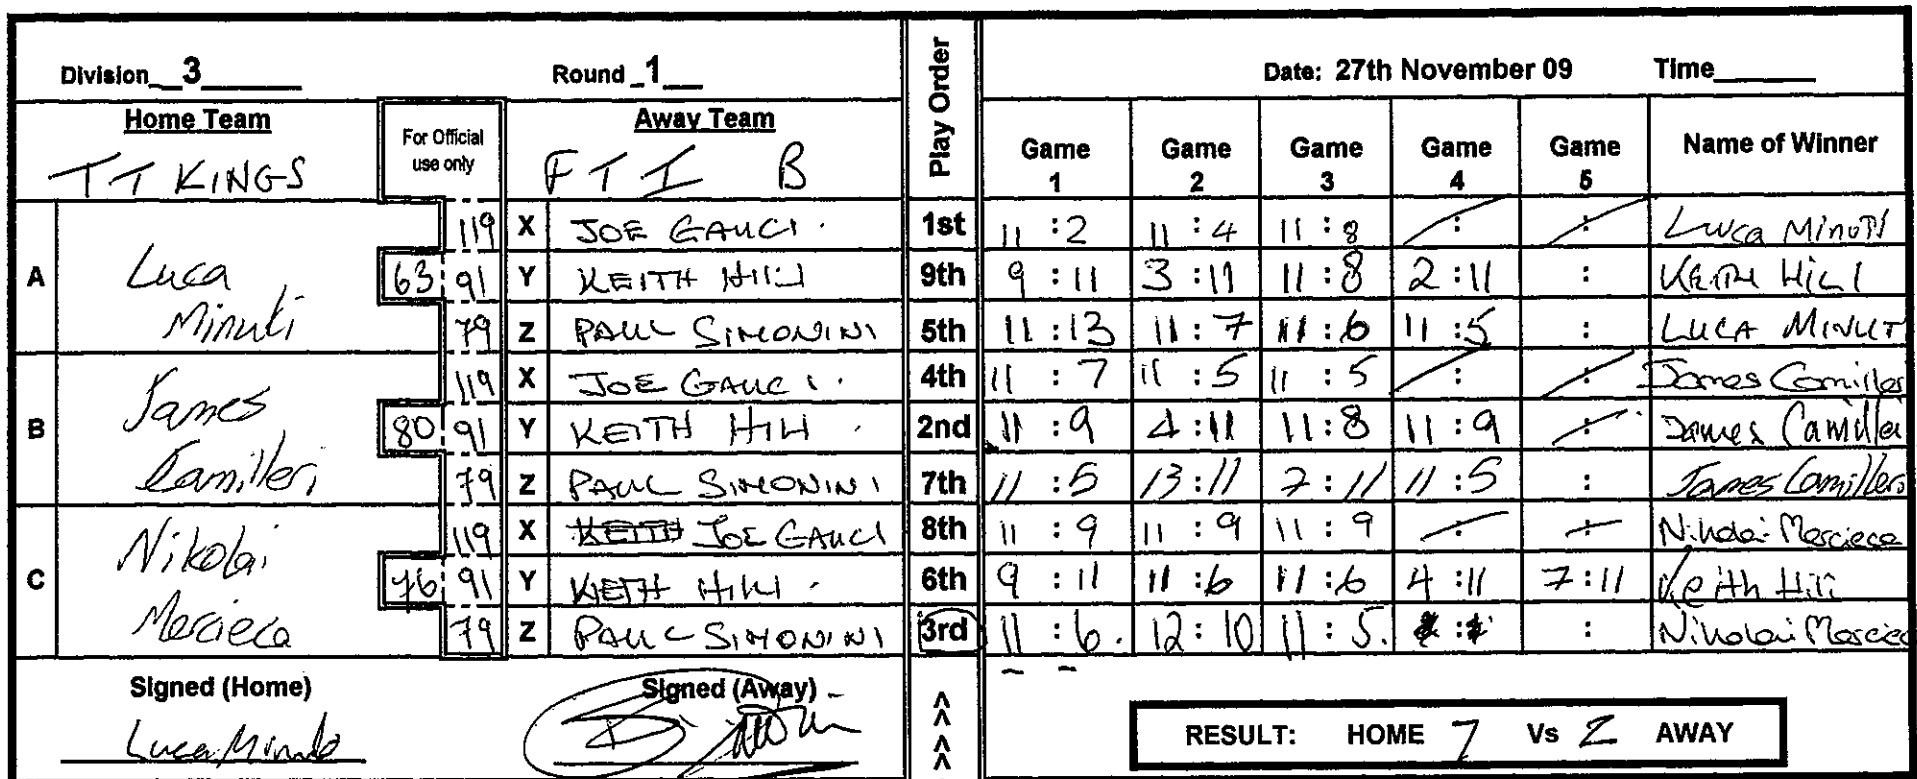 Division 3 Round 1 Play Order Date: 27th November 09 Time
Home Team For Official use only Away Team Game 1 Game 2 Game 3 Game 4 Game 5 Name of Winner
TT KINGS FTI B
A Luca Minuti 63
119 X JOE GAUCI . 1st 11 : 2 11 : 4 11 : 8 : : Luca Minuti
91 Y KEITH Hili 9th 9 : 11 3 : 11 11 : 8 2 : 11 : KEITH HiLI
79 Z PAUL SIMONINI 5th 11 : 13 11 : 7 11 : 6 11 : 5 : LUCA MINUT
B James Camilleri 80
119 X JOE GAUCI . 4th 11 : 7 11 : 5 11 : 5 : : James Camilleri
91 Y KEITH Hili . 2nd 11 : 9 4 : 11 11 : 8 11 : 9 : James Camilleri
79 Z PAUL SIMONINI 7th 11 : 5 13 : 11 7 : 11 11 : 5 : James Camilleri
C Nikolai Mercieca 76
119 X KEITH JOE GAUCI 8th 11 : 9 11 : 9 11 : 9 : : Nikolai Mercieca
91 Y KEITH Hili . 6th 9 : 11 11 : 6 11 : 6 4 : 11 7 : 11 Keith Hili
79 Z PAUL SIMONINI 3rd 11 : 6. 12 : 10 11 : 5. : : Nikolai Mercieca
Signed (Home) Signed (Away) > > > >
Luca Minuti
RESULT: HOME 7 Vs 2 AWAY